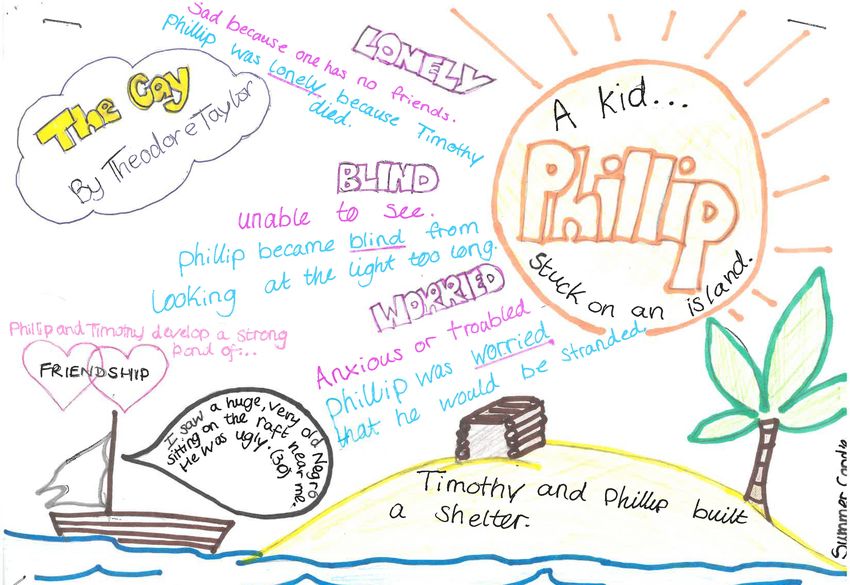 The Cay
By Theodore Taylor
LONELY
Sad because one has no friends.
Phillip was lonely because Timothy
died.
BLIND
unable to see.
Phillip became blind from
looking at the light too long.
WORRIED
Anxious or troubled
Phillip was worried
that he would be stranded.
A kid...
Phillip
stuck on an island.
Phillip and Timothy develop a strong
bond of...
FRIENDSHIP
I saw a huge, very old Negro
sitting on the raft near me.
He was ugly. (30)
Timothy and Phillip built
a shelter.
Summer